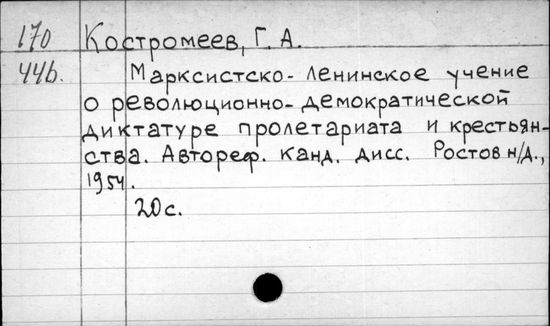 170 Костромеев, Г. А.
446. Марксистско-Ленинское учение
о революционно-демократической
диктатуре пролетариата и крестьян-
ства. Автореф. канд. дисс. Ростов н/Д.,
1954.
20 с.